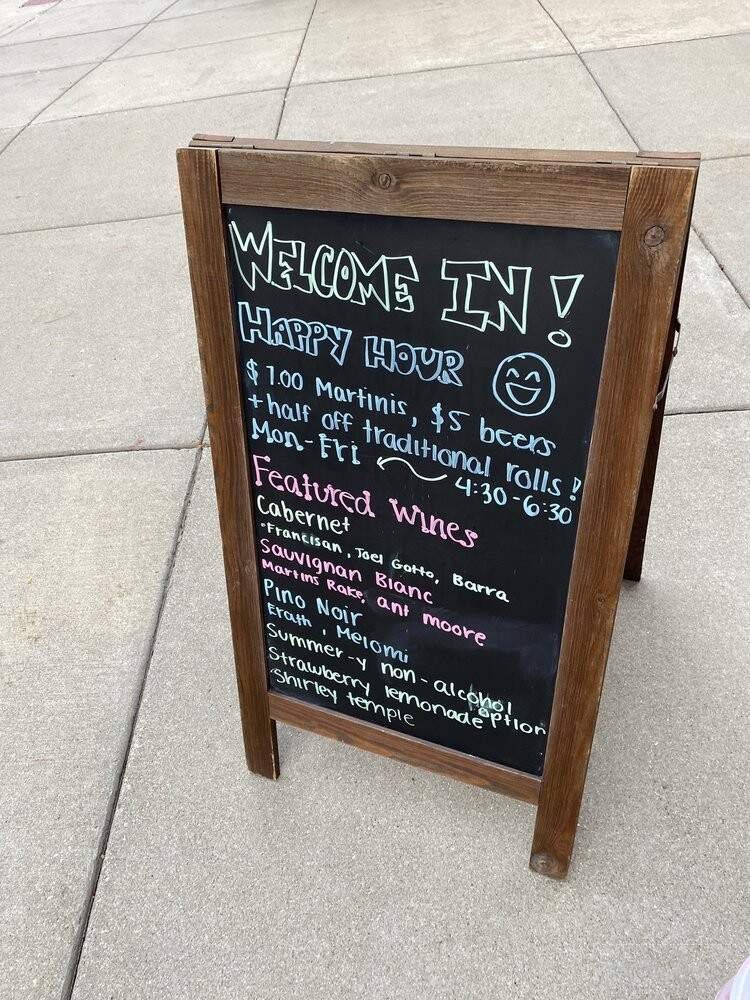 WELCOME IN!
HAPPY HOUR
$7.00 Martinis, $5 beers
+ half off traditional rolls!
Mon-Fri 4:30-6:30
Featured Wines
Cabernet
•Francisan, Joel Gotto, Barra
Sauvignan Blanc
Martins Rake, ant moore
Pino Noir
Erath, Melomi
Summer-y non-alcohol option
Strawberry lemonade
Shirley temple